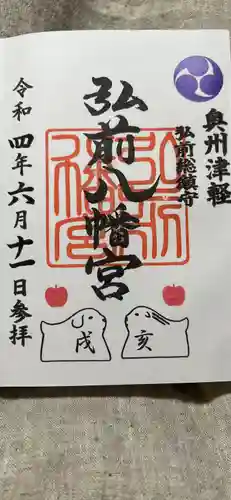 奥州津軽
弘前総鎮守
弘前八幡宮
令和四年六月十一日参拝
戌
亥